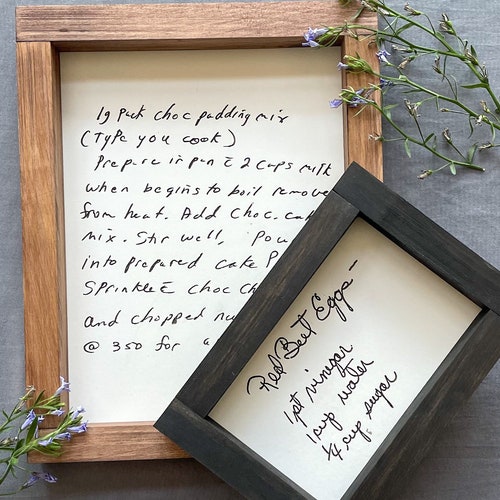 1g pack choc pudding mix
(Type you cook)
Prepare in pan c̄ 2 cups milk
when begins to boil remove
from heat. Add choc. ca
mix. Stir well, Pou
into prepared cake P
Sprinkle c̄ choc ch
and chopped nu
@ 350 for
Red Beet Eggs -
1pt vinegar
1cup water
1/4 cup sugar